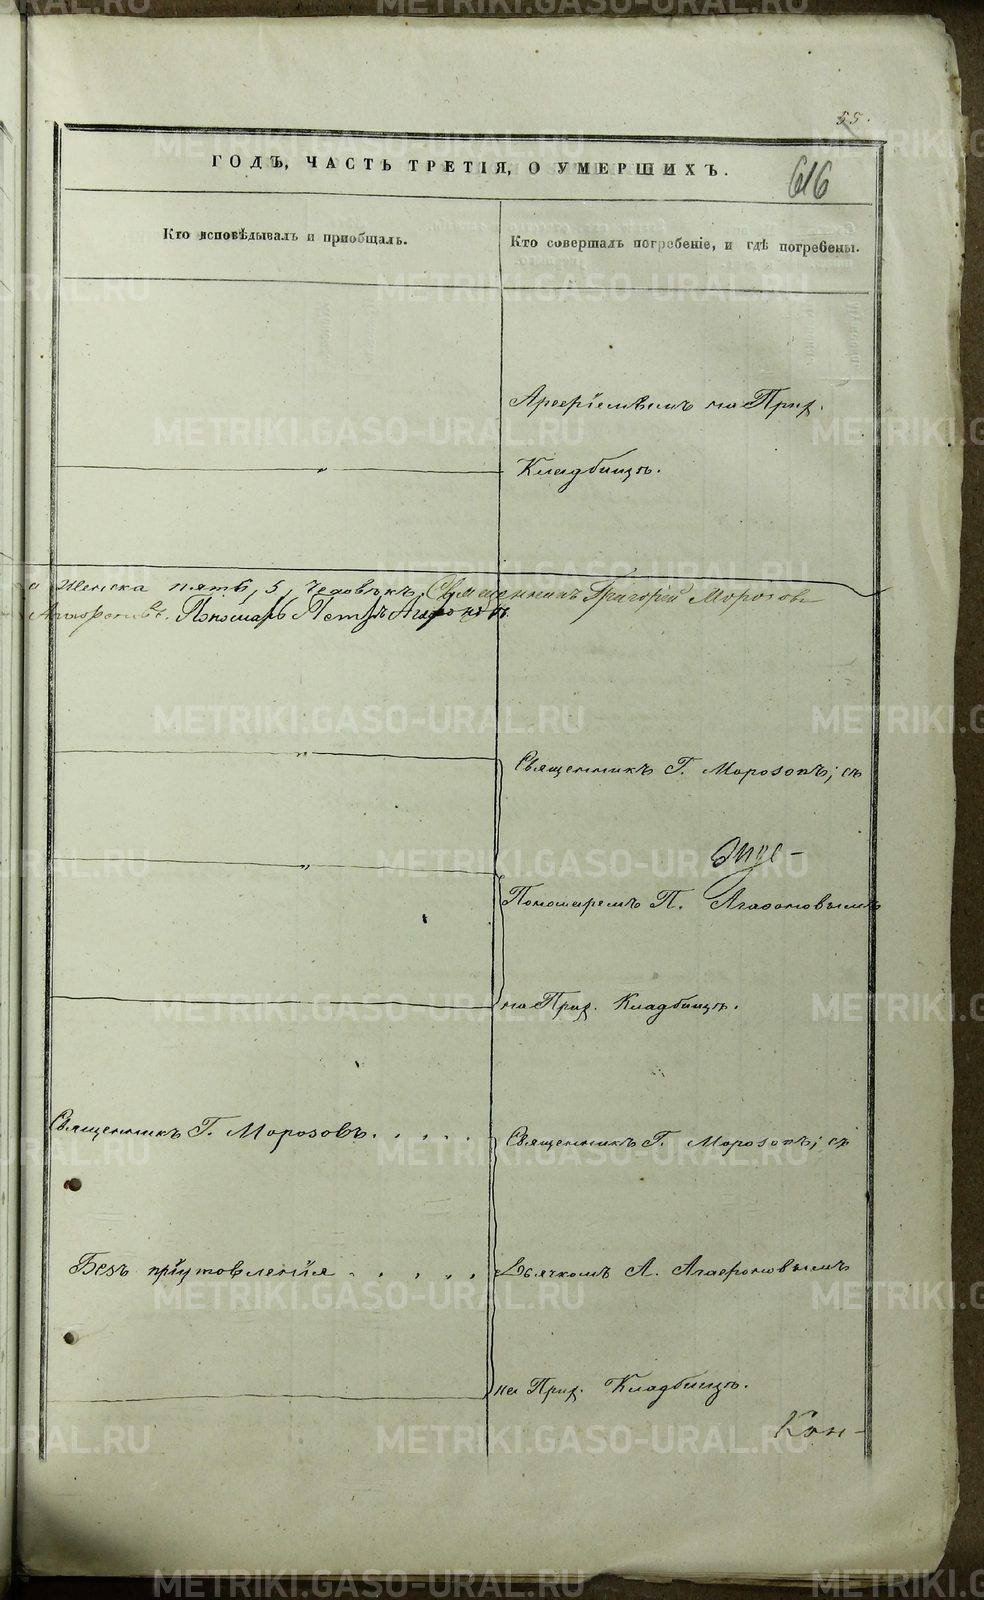 55.
616
ГОДЪ, ЧАСТЬ ТРЕТІЯ, О УМЕРШИХЪ.
Кто исповѣдывалъ и пріобщалъ.
Кто совершалъ погребеніе, и гдѣ погребены.
на Прих.
Кладбищѣ.
Женска пять, 5, человѣкъ. Священникъ Григорій Морозов
Пономарь Петръ Агафоновъ.
Священникъ Г. Морозовъ; съ
Пономаремъ П. Агафоновымъ
на Прих. Кладбищѣ.
Священникъ Г. Морозовъ. . . . .
Священникъ Г. Морозовъ; съ
Безъ пріуготовленія . . . . .
Дьячкомъ А. Агафоновымъ
на Прих. Кладбищѣ.
Кон-
METRIKI.GASO-URAL.RU